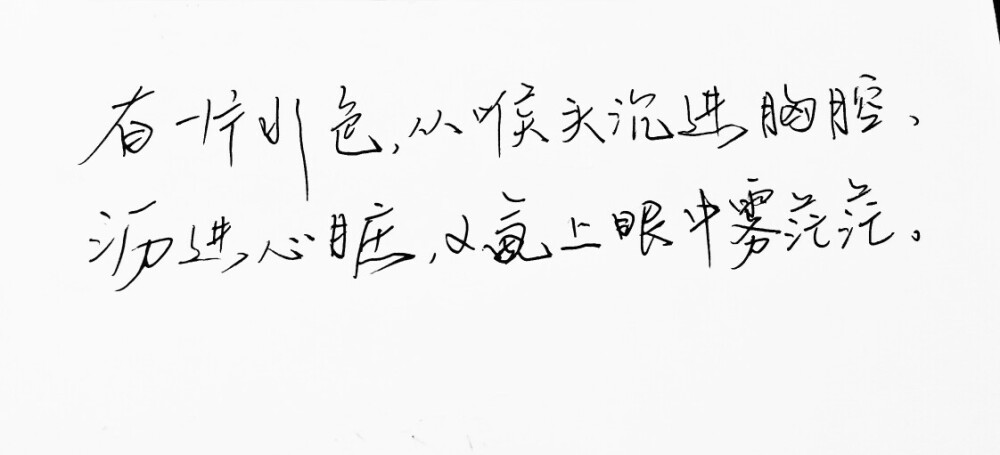 有一片水色,从喉头沉进胸腔、
沥进心脏,又氤上眼中雾茫茫。